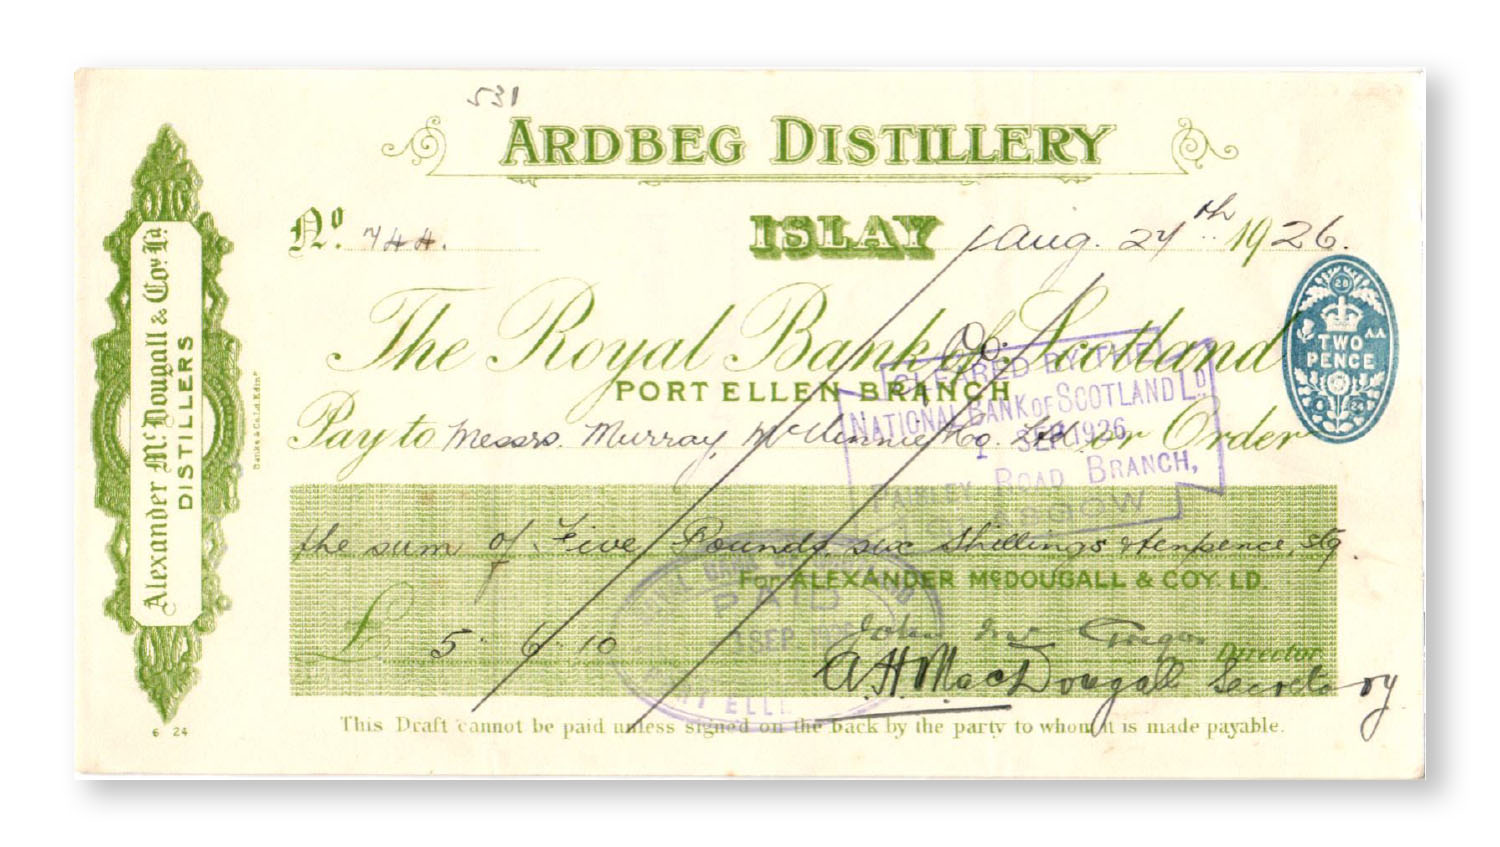 531
ARDBEG DISTILLERY
No. 744.
ISLAY Aug. 27th 1926.
The Royal Bank of Scotland
PORT ELLEN BRANCH
Pay to Messrs. Murray, McVinnie & Co. Ltd. or Order
the sum of Five Pounds, six Shillings & tenpence, stg.
For ALEXANDER McDOUGALL & COY. LD.
£ 5 - 6 - 10
John Director
A. H. MacDougall Secretary
This Draft cannot be paid unless signed on the back by the party to whom it is made payable.
Alexander McDougall & Coy. Ld.
DISTILLERS
Banks & Co. Ld. Edinr
6 24
28
A.A.
TWO
PENCE
24
& Co.
CLEARED BY THE
NATIONAL BANK OF SCOTLAND LD.
1 SEP. 1926
PAISLEY ROAD BRANCH,
GLASGOW
ROYAL BANK OF SCOTLAND
PAID
SEP. 1926
PORT ELLEN